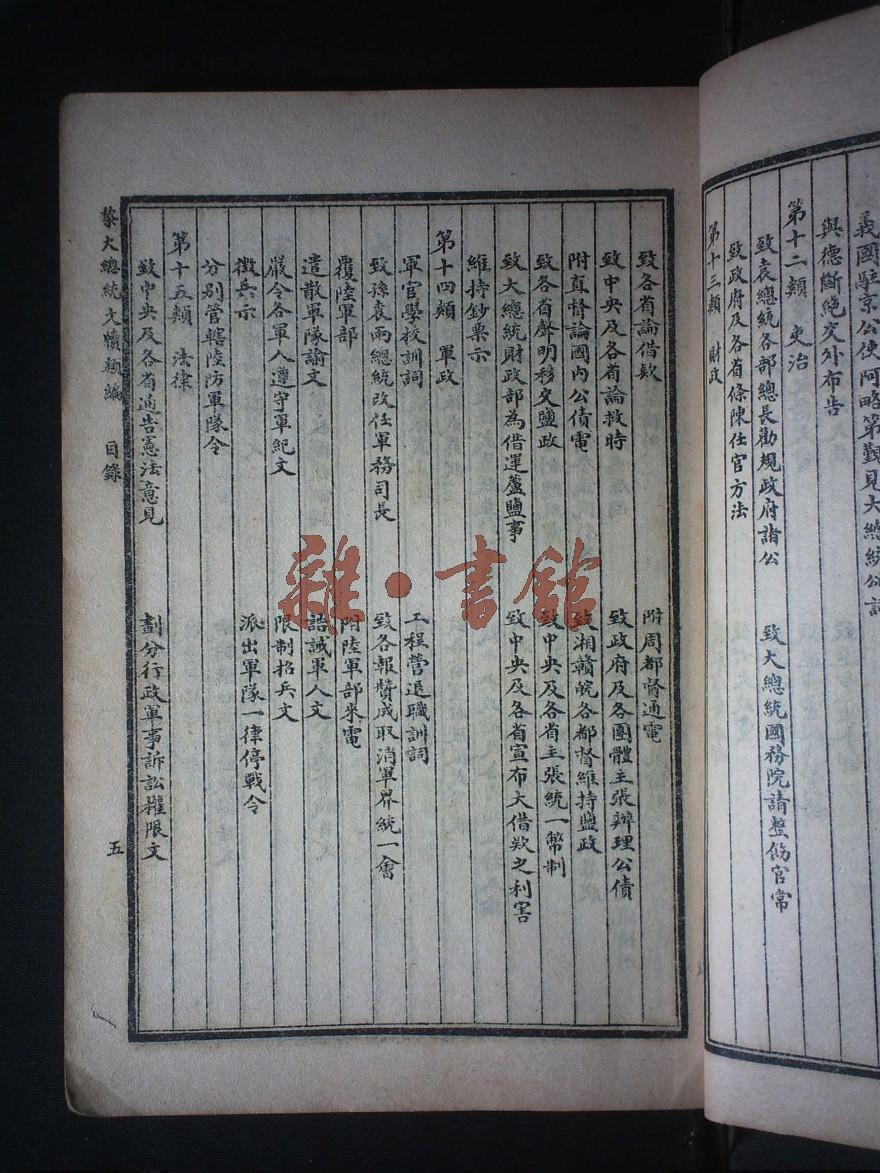 義國駐京公使阿略第覲見大總統公詞
與德斷絶交外布告
第十二類 吏治
致袁總統各部總長勸規政府諸公 致大總統國務院請整飭官常
致政府及各省條陳任官方法
第十三類 財政
致各省論借款 附周都督通電
致中央及各省論救時 致政府及各團體主張辦理公債
附直督論國內公債電 致湘贛皖各都督維持鹽政
致各省聲明移交鹽政 致中央及各省主張統一幣制
致大總統財政部為借運蘆鹽事 致中央及各省宣布大借欵之利害
維持鈔票示
第十四類 軍政
軍官學校訓詞 工程營退職訓詞
致孫袁兩總統改任軍務司長 致各報贊成取消軍界統一會
覆陸軍部 附陸軍部來電
遣散軍隊諭文 誥誡軍人文
嚴令各軍人遵守軍紀文 限制招兵文
徵兵示 派出軍隊一律停戰令
分別管轄陸防軍隊令
第十五類 法律
致中央及各省通告憲法意見 劃分行政軍事訴訟權限文
黎大總統文牘類編 目錄 五
雜·書館